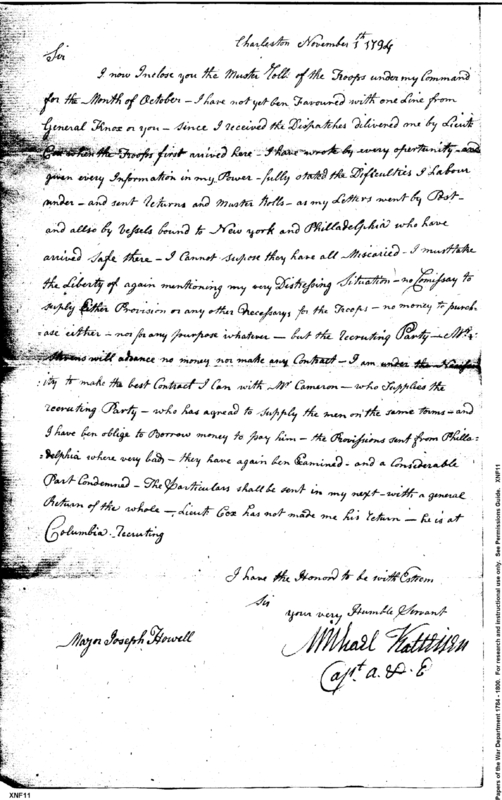 Charleston November 1st 1794
Sir
I now Inclose you the Muste Roll of the Troops under my Command
for the Month of October - I have not yet ben Favoured with one Line from
General Knox or you - since I received the Dispatches delivered me by Lieut
Cox when the Troops first arrived here - I have wrote by every opertunity - and
given every Information in my Power - fully stated the Difficulties I Labour
under - and sent Returns and Muster Rolls - as my Letters went by Post -
and allso by Vessels bound to New york and Philladelphia who have
arrived safe there - I Cannot supose they have all Miscaried - I must take
the Liberty of again mentioning my very Distressing Situation - no Comissay to
supply Either Provision or any other Necessarys for the Troops - no money to purch
ase either - nor for any purpose whatever - but the Recruiting Party - Mr
will advance no money nor make any Contract - I am under the
ity to make the best Contract I Can with Mr Cameron - who Supplies the
recruiting Party - who has agread to supply the men on the same terms - and
I have ben oblige to Borrow money to pay him - the Provissions sent from Philla
=delphia where very bad - they have again ben Examined - and a Considerable
Part Condemned - The Particulars shall be sent in my next - with a general
Return of the whole - Lieut Cox has not made me his return - he is at
Columbia - Recruiting
I have the Honord to be with Esteem
Sir
your very Humble Servant
Mayor Joseph Howell
Michael Kalteisen
Capt. A. & E
XNF11
Papers of the War Department 1784 - 1800. For research and instructional use only. See Permissions Guide. XNF11